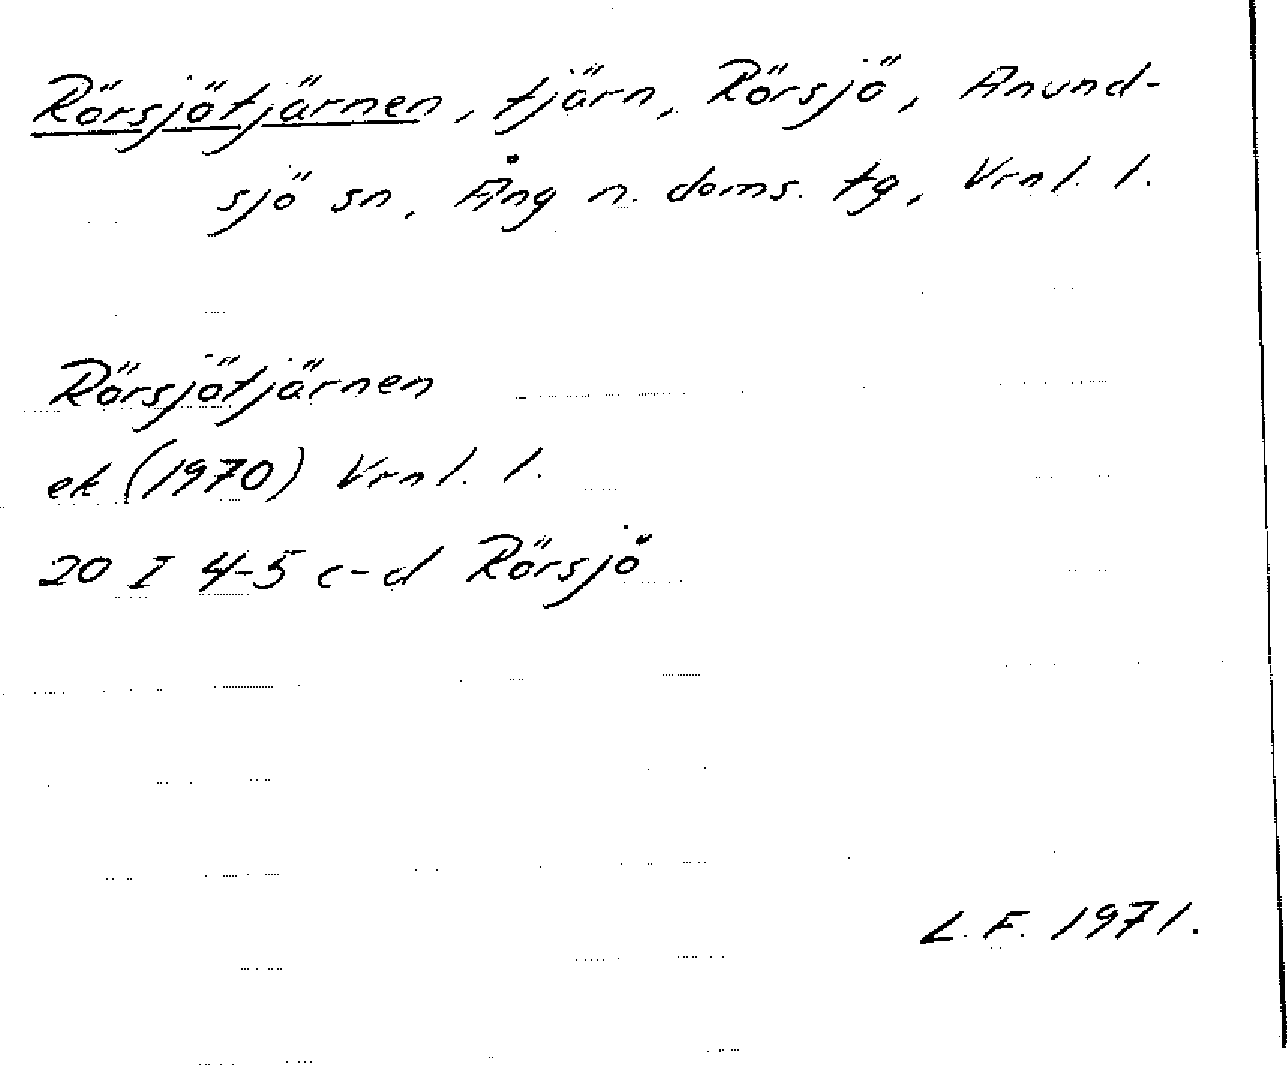 Rörsjötjärnen, tjärn, Rörsjö, Anund-
sjö sn, Ång n. doms. tg, Vrnl. l.
Rörsjötjärnen
ek (1970) Vrnl. l.
20 I 4-5 c-d Rörsjö
L. F. 1971.